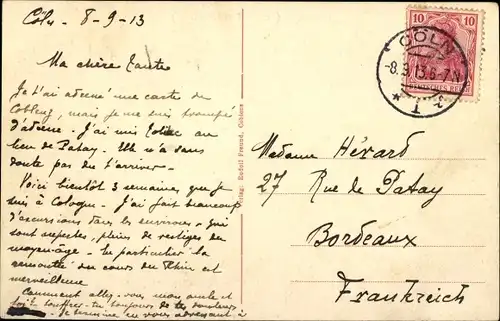 Cöln 8-9-13
Ma chère Tante
Je t'ai adressé une carte de
Coblenz, mais je me suis trompé
d'adresse. J'ai mis au
lieu de Patay. Elle n'a sans
doute pas dû t'arriver.
Voici bientôt 3 semaines que je
suis à Cologne. J'ai fait beaucoup
d'excursions dans les environs - qui
sont superbes, pleins de vestiges du
moyenâge. En particulier la
remontée du cours du Rhin est
merveilleuse
Comment allez-vous, mon oncle et
toi? Souffres-tu toujours de tes douleurs
Je termine en vous adressant à
Verlag: Rudolf Freund, Coblenz
10 10
DEUTSCHES REICH
CÖLN
-8.9.13.6-7N
* 1
Madame Hérard
27 Rue de Patay
Bordeaux
Frankreich